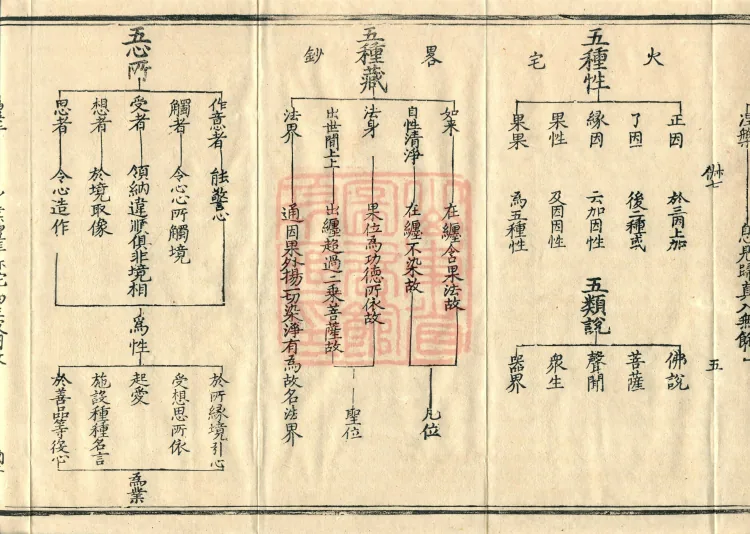 火宅
五種性
正因 於三因上加
了因 後二種或
緣因 云加因性
果性 及因因性
果果 為五種性
五類說
佛說
菩薩
聲聞
眾生
器界
五
畧鈔
五種藏
如來 在纏含果法故
自性清淨 在纏不染故
法身 果位為功德所依故
出世間上上 出纏超過二乘菩薩故
法界 通因果外揚一切染淨有為故名法界
凡位
聖位
五心所
作意者 能警心
觸者 令心心所觸境
受者 領納違順俱非境相
想者 於境取像
思者 令心造作
為性
於所緣境引心
受想思所依
起愛
施設種種名言
於善品等役心
為業